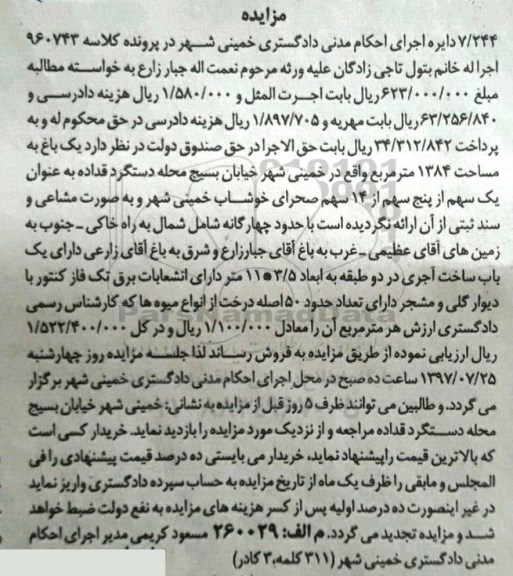 مزایده
۷/۲۴۴ دایره اجرای احکام مدنی دادگستری خمینی شهر در پرونده کلاسه ۹۶۰۷۴۳
اجرا له خانم بتول تاجی زادگان علیه ورثه مرحوم نعمت اله جبار زارع به خواسته مطالبه
مبلغ ۶۲۳/۰۰۰/۰۰۰ ریال بابت اجرت المثل و ۱/۵۸۰/۰۰۰ ریال هزینه دادرسی و
۶۳/۲۵۶/۸۴۰ ریال بابت مهریه و ۱/۸۹۷/۷۰۵ ریال هزینه دادرسی در حق محکوم له و به
پرداخت ۳۴/۳۱۲/۸۴۲ ریال بابت حق الاجرا در حق صندوق دولت در نظر دارد یک باغ به
مساحت ۱۳۸۴ مترمربع واقع در خمینی شهر خیابان بسیج محله دستگرد قداده به عنوان
یک سهم از پنج سهم از ۱۴ سهم صحرای خوشاب خمینی شهر و به صورت مشاعی و
سند ثبتی از آن ارائه نکردیده است با حدود چهارگانه شامل شمال به راه خاکی ـ جنوب به
زمین های آقای عظیمی ـ غرب به باغ آقای جبارزارع و شرق به باغ آقای زارعی دارای یک
باب ساخت آجری در دو طبقه به ابعاد ۳/۵*۱۱ متر دارای انشعابات برق تک فاز کنتور با
دیوار گلی و مشجر دارای تعداد حدود ۵۰ اصله درخت از انواع میوه ها که کارشناس رسمی
دادگستری ارزش هر مترمربع آن را معادل ۱/۱۰۰/۰۰۰ ریال و در کل ۱/۵۲۲/۴۰۰/۰۰۰
ریال ارزیابی نموده از طریق مزایده به فروش رساند لذا جلسه مزایده روز چهارشنبه
۱۳۹۷/۰۷/۲۵ ساعت ده صبح در محل اجرای احکام مدنی دادگستری خمینی شهر برگزار
می گردد. و طالبین می توانند ظرف ۵ روز قبل از مزایده به نشانی: خمینی شهر خیابان بسیج
محله دستگرد قداده مراجعه و از نزدیک مورد مزایده را بازدید نماید. خریدار کسی است
که بالاترین قیمت را پیشنهاد نماید، خریدار می بایستی ده درصد قیمت پیشنهادی را فی
المجلس و مابقی را ظرف یک ماه از تاریخ مزایده به حساب سپرده دادگستری واریز نماید
در غیر اینصورت ده درصد اولیه پس از کسر هزینه های مزایده به نفع دولت ضبط خواهد
شد و مزایده تجدید می گردد. م الف: ۲۶۰۰۲۹ مسعود کریمی مدیر اجرای احکام
مدنی دادگستری خمینی شهر (۳۱۱ کلمه، ۳ کادر)
ParsNamadData